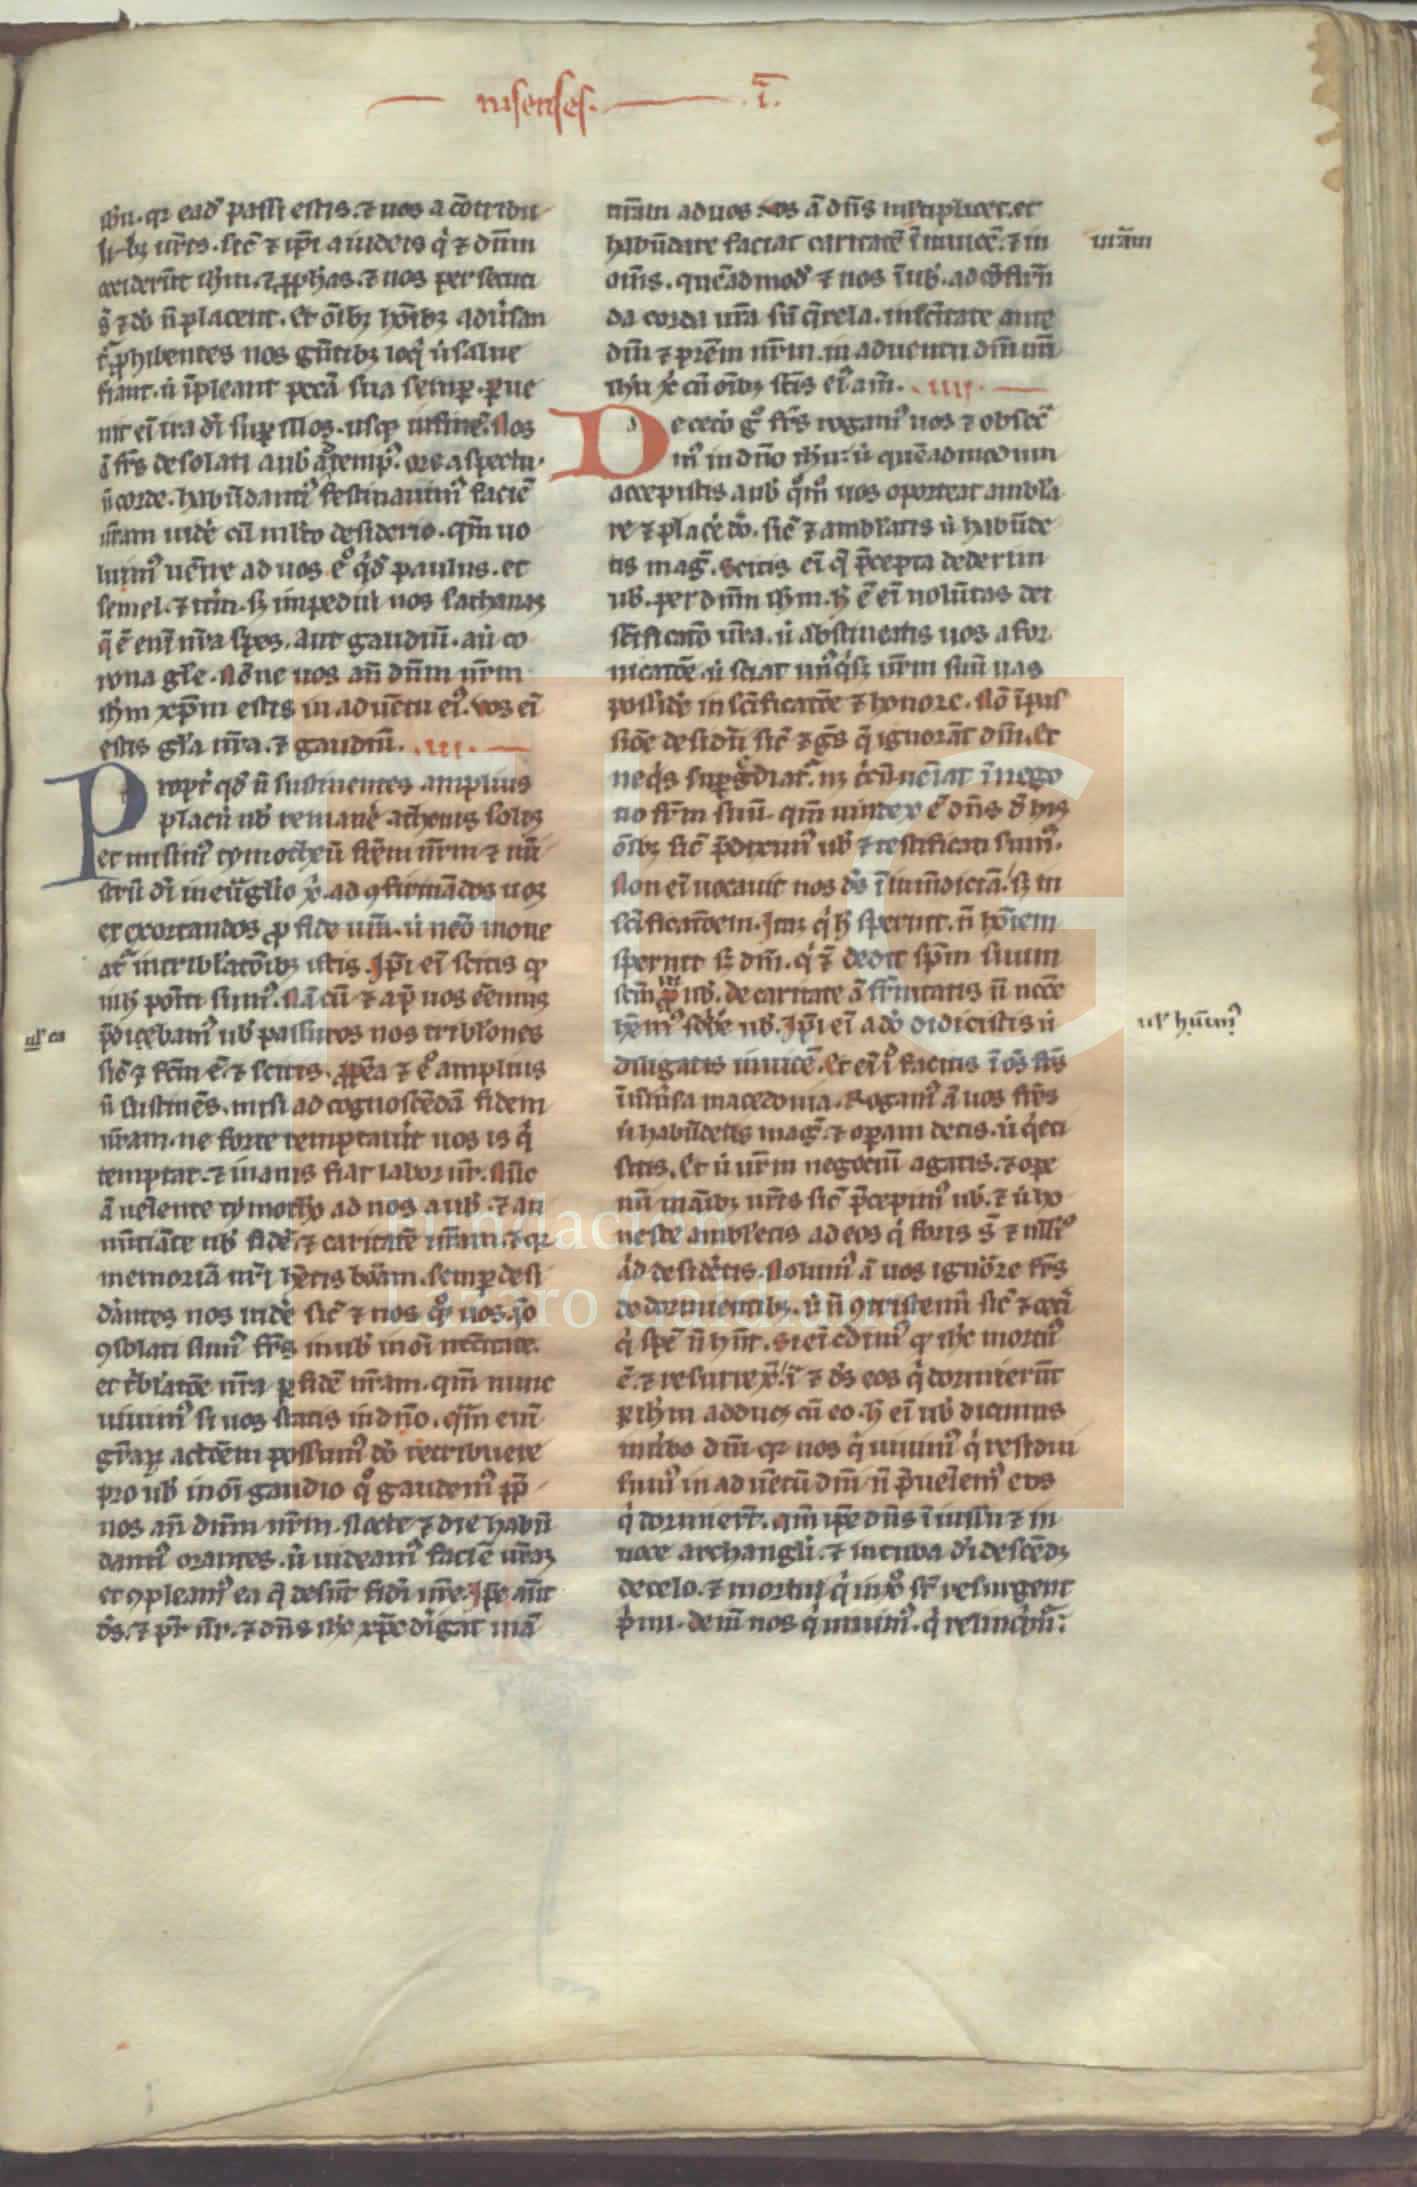 nisenses. .i.
ihu. qr ead passi estis. ⁊ uos a cōtribu
libꝫ uris. sic̄ ⁊ ip̄i a iudeis q̇ ⁊ dn̄m
occiderūt ihm. ⁊ ꝓphas. ⁊ nos persecuti
ꝓhibentes nos gn̄tibꝫ loq̇ ut salue
fiant. ut īpleant pccā sua semꝑ. ꝑue
nit eī ira dī suꝑ illos. usqꝫ in finē. Nos
ā fr̄s desolati a uob ad tempꝰ. ore. aspectu.
n̄ corde. habūdantiꝰ festinauimꝰ faciē
ur̄am uidē cū mlto desiderio. qm̄ uo
luimꝰ uēire ad uos eº q̇d paulus. et
semel. ⁊ itm. sꝫ impediit nos sathanas
q̄ ē enī nr̄a spes. aut gaudiū. aut co
rona gl̄e. Nōne uos an̄ dn̄m nr̄m
ihm xp̄m estis in aduētu eiꝰ. Vos eī
estis gl̄a nr̄a. ⁊ gaudiū. .iii.
Propt̄ qd n̄ sustinentes amplius
placuit nob remanē athenis solis
et misimꝰ tymotheū frēm nr̄m ⁊ mī
strū dī in euãglio x̄. ad ꝯfirmādos uos
et exortandos ꝓ fide ur̄a. ut nēo moue
at in tribl̄atōibꝫ istis. Ip̄i eī scitis qꝫ
in h̄ positi sumꝰ. Nā cū ⁊ ap̄ uos eēmus
p̄dicebamꝰ uob passuros nos tribl̄ones
ul ea
sic̄ ⁊ fcm̄ ē. ⁊ scitis. ꝓpt̄ea ⁊ eº amplius
n̄ sustinēs. misi ad cognoscēdā fidem
ur̄am. ne forte temptauit uos is q̇
temptat. ⁊ inanis fiat labor nr̄. Nūc
ā ueīente tymotheo ad nos a uob. ⁊ an
nūtiāte nob fidē ⁊ caritatē ur̄am. ⁊ qr
memoriā nr̄i hētis bōam. semꝑ desi
dantes nos uidē sic̄ ⁊ nos qºꝫ uos. iō
ꝯsolati sumꝰ fr̄s in uob in oī necc̄itate
et tribl̄atōe nr̄a ꝑ fidē ur̄am. qm̄ nunc
uiuimꝰ si uos statis in dn̄o. Qm̄ enī
gr̄aꝝ actōem possumꝰ dō retribuere
pro uob in oī gaudio qº gaudemꝰ ꝓp̄
uos an̄ dn̄m nr̄m. Nocte ⁊ die habū
dantiꝰ orantes. ut uideamꝰ faciē ur̄am
et ꝯpleamꝰ ea q̄ desunt fidī ur̄e. Ip̄e aūt
ds̄. ⁊ pr̄ nr̄. ⁊ dn̄s ihc xp̄c dirigat uiā
nr̄am ad uos. Vos ā dn̄s mltiplicet. et
habūdare faciat caritatē ī inuicē. ⁊ in
ur̄am
oms. quēadmodū ⁊ nos ī uob. ad cōfirm̄
da corda ur̄a sin̄ q̄rela. in scītate ante
dm̄ ⁊ prēm nr̄m. in aduentu dn̄i nr̄i
ihu x̄ cū oībꝫ scīs eiꝰ am̄. .iiii.
De cetō gº fr̄s rogamꝰ uos ⁊ obsecº
mꝰ in dn̄o ihu. ut quēadmodum
accepistis a uob qºmº uos oporteat ambla
re ⁊ placē dō. sic̄ ⁊ amblatis ut habūde
tis maḡ. Scitis eī q̄ p̄cepta dederim
uob. per dn̄m ihm. h̄ ē eī nolūtas dei
scīficatō ur̄a. ut abstineatis uos a for
nicatōe. ut sciat unꝰq̇sqꝫ ur̄m suū uas
possidē in scīficatōe ⁊ honore. Nō ī pas
siōe desid̄ii sic̄ ⁊ gn̄s q̄ ignorāt dm̄. Et
neq̇s suꝑgrediat. nꝫ circūueīat ī nego
tio fr̄m suū. qm̄ uindex ē dn̄s d̄ his
oībꝫ sic̄ p̄diximꝰ uob ⁊ testificati sumꝰ.
Non eī uocauit nos ds̄ ī inmūdiciā. sꝫ in
scīficatōem. Itaꝫ q̇ h̄ spernit. n̄ hoīem
spernit sꝫ dm̄. q̇ ⁊ dedit sp̄m suum
scm̄ in uob. de caritate ā fr̄nitatis n̄ necc̄e
hēmꝰ scribē uob. Ip̄i eī a dō didicistis ut
ul hūimꝰ
diligatis inuicē. Et eī iº facitis ī oms fr̄s
ī uniūsa macedonia. Rogamꝰ ā uos fr̄s
ut habūdetis maḡ. ⁊ oꝑam detis. ut q̇eti
sitis. Et ut ur̄m negociū agatis. ⁊ oꝑe
mī manibꝫ ur̄is sic̄ p̄cepimꝰ uob. ⁊ ut ho
neste ambletis ad eos q̇ foris st̄ ⁊ nlliꝰ
aīd desidētis. Nolumꝰ ā uos ignorare fr̄s
de dormientibꝫ. ut n̄ ꝯtristemī sic̄ ⁊ cet̄i
q̇ spē n̄ hn̄t. Si eī cdimꝰ qꝫ ihc mortuꝰ
ē. ⁊ resurrex̄. ita ⁊ ds̄ eos q̇ dormierūt
ꝑ ihm adducet cū eo. h̄ eī uob dicimus
in ūbo dn̄i. qr nos q̇ uiuimꝰ q̇ residui
sumꝰ in aduētū dn̄i n̄ p̄ueīemꝰ eos
q̇ dormiert̄. qm̄ ip̄e dn̄s ī iussu ⁊ in
uoce archangli. ⁊ in tuba dī descēdꝫ
de celo. ⁊ mortui q̇ in xº st̄ resurgent
ṗmi. dein̄ nos q̇ uiuimꝰ. q̇ relinq̇mr.
Fundación
Lázaro Galdiano